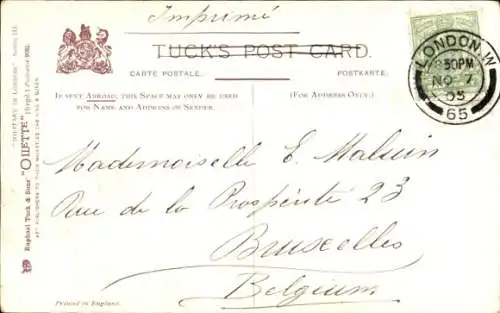 Imprimé
TUCK'S POST CARD.
CARTE POSTALE.
POSTKARTE.
IF SENT ABROAD, THIS SPACE MAY ONLY BE USED
FOR NAME AND ADDRESS OF SENDER.
(FOR ADDRESS ONLY.)
LONDON.W
30PM
NO 7
05
65
Mademoiselle E. Malsuin
Rue de la Prospérité 23
Bruxelles
Belgium
Printed in England.
Raphael Tuck & Sons' "OILETTE" [Regd.] Postcard
ART PUBLISHERS TO THEIR MAJESTIES THE KING & QUEEN
"MILITARY IN LONDON"